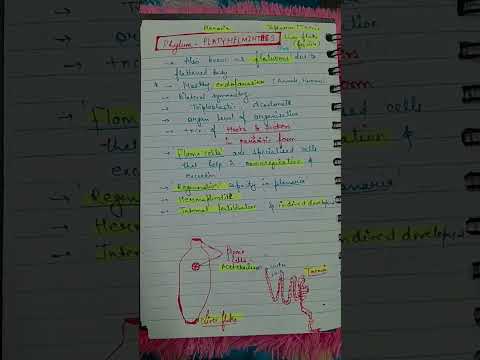 Planaria
Taenia
Liver fluke
(fasciola)
Phylum - PLATYHELMINTHES
→ Also known as flatworms due to
flattened body
→ Mostly endoparasites
→ Bilateral symmetry
→ Triploblastic Acoelomate
→ Organ level of organisation
→ +nce of Hooks & Suckers
in parasitic form
→ Flame cells are specialised cells
that help in osmoregulation &
excretion
→ 'Regeneration' capacity in planaria
→ Hermaphrodite
→ Internal fertilisation & indirect development
Flame
cells
Acetabulum
Taenia
Liver fluke